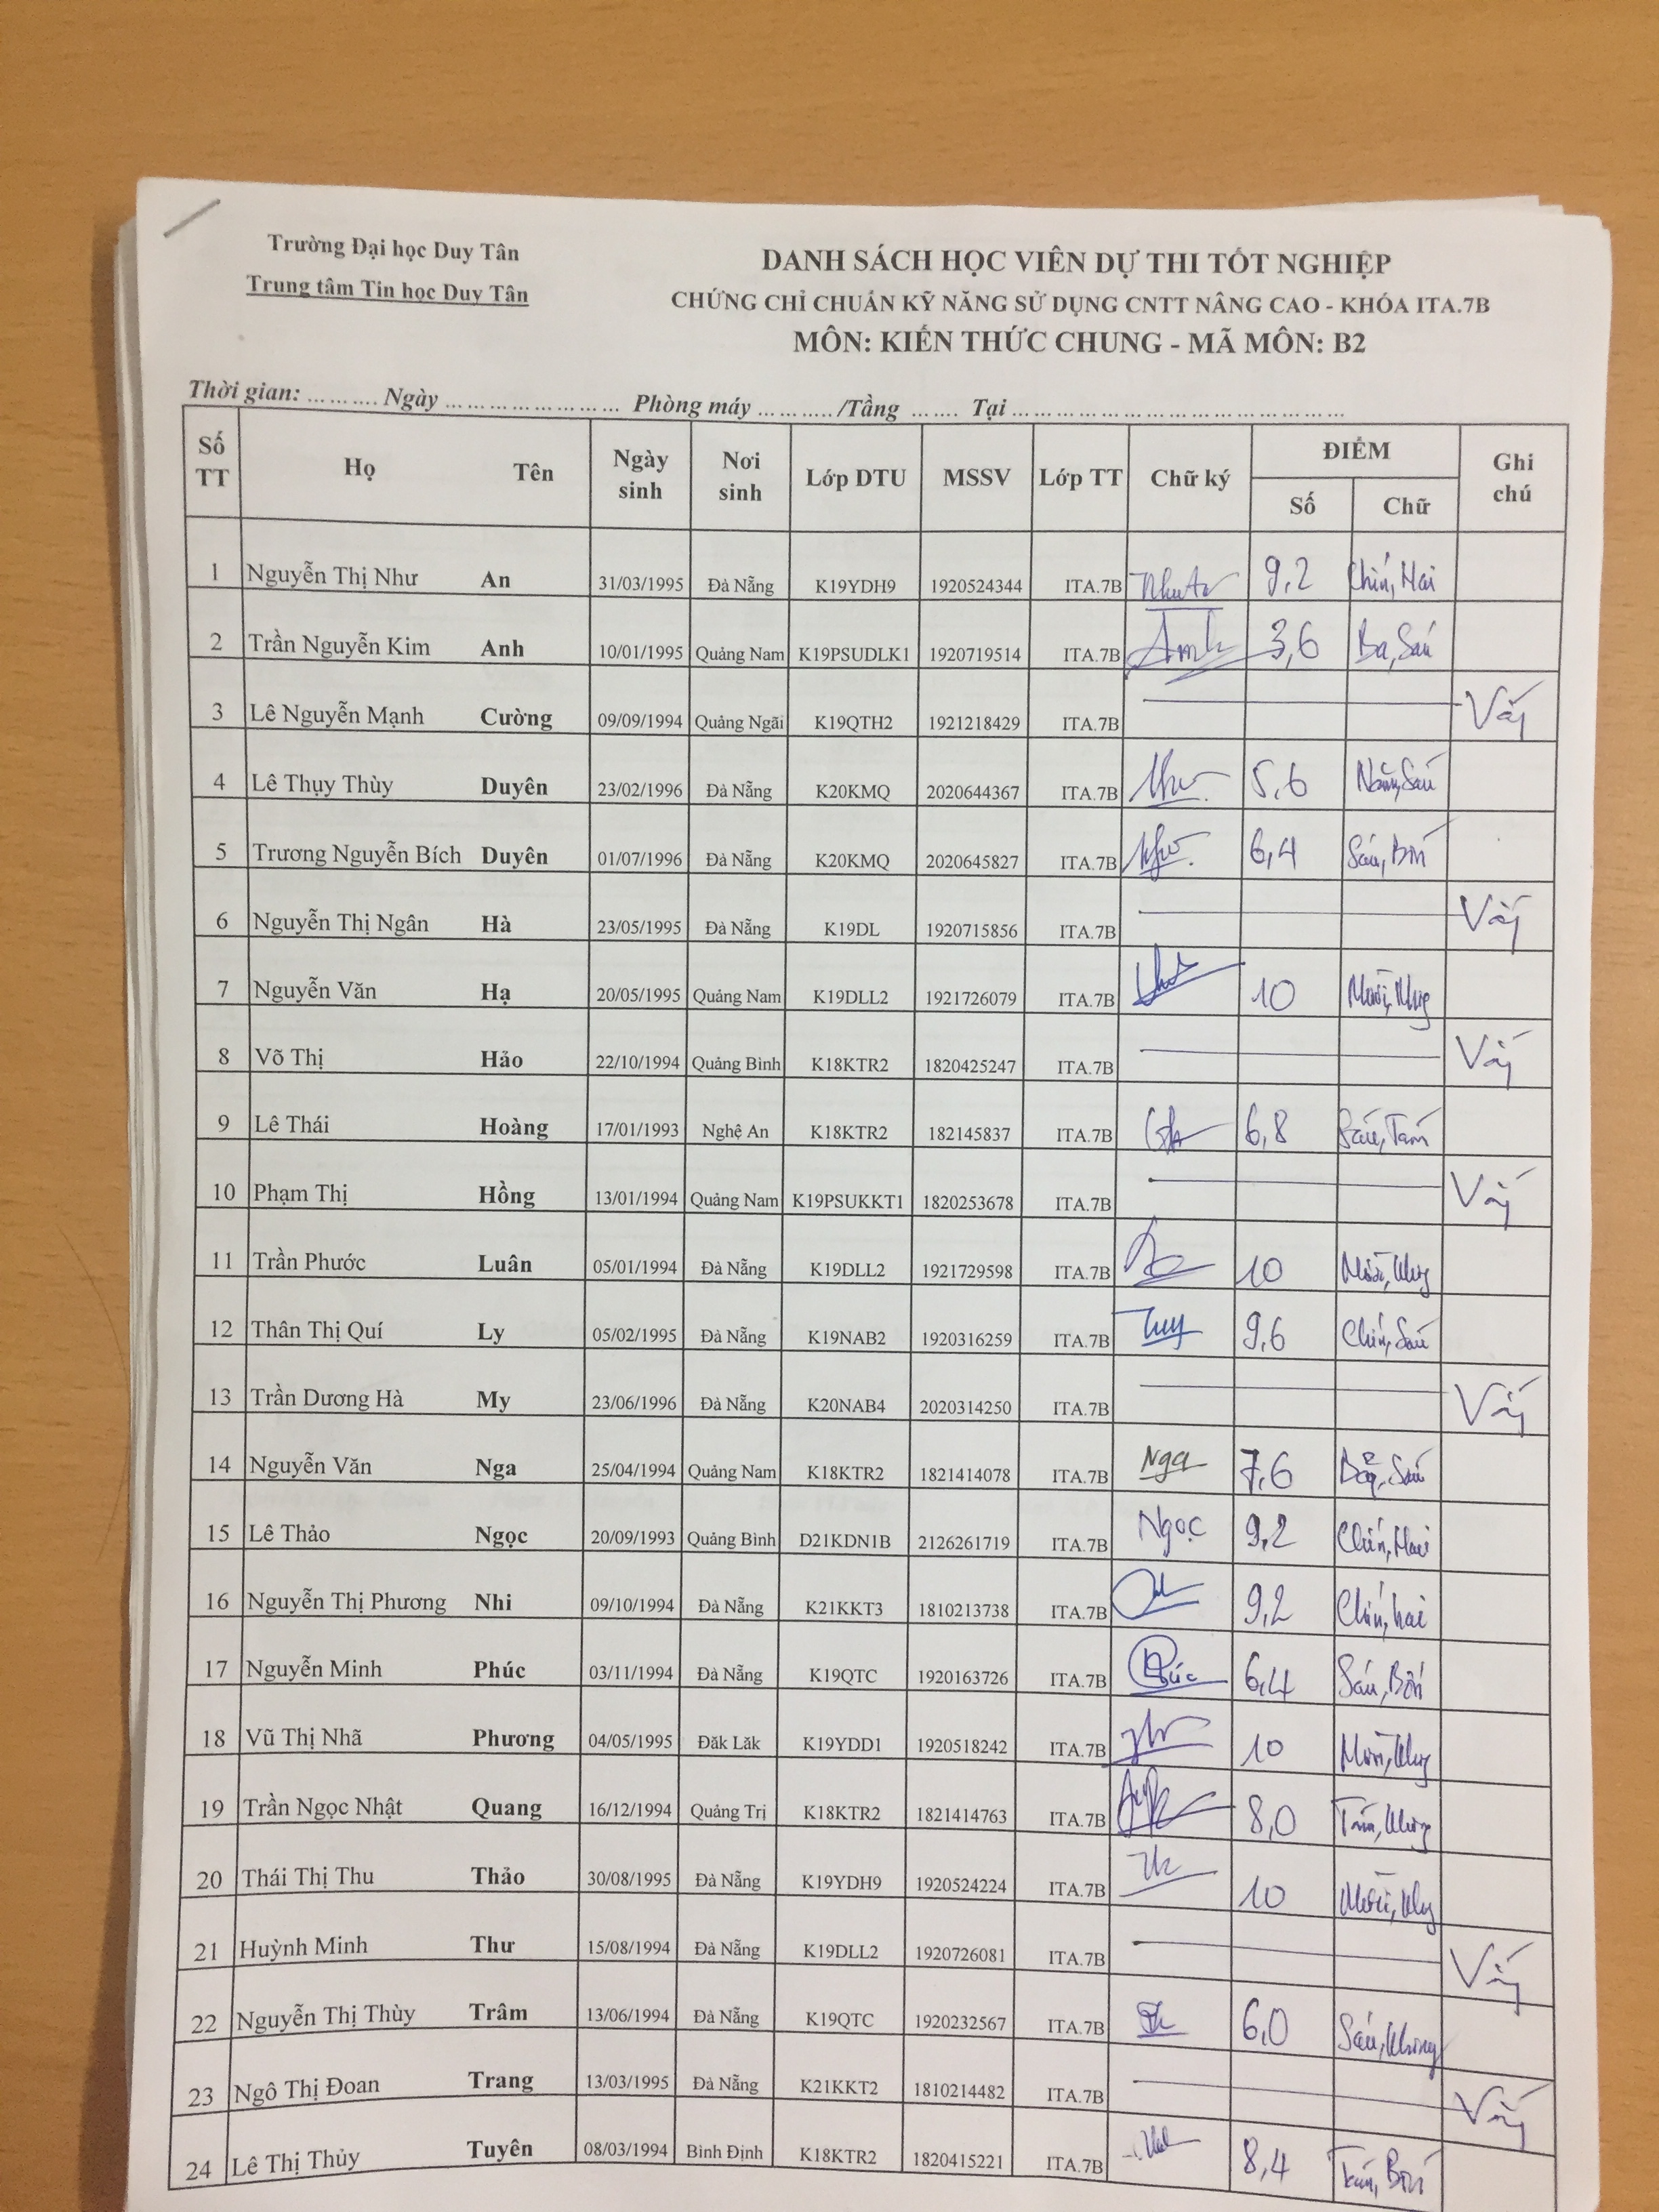 Trường Đại học Duy Tân
Trung tâm Tin học Duy Tân
DANH SÁCH HỌC VIÊN DỰ THI TỐT NGHIỆP
CHỨNG CHỈ CHUẨN KỸ NĂNG SỬ DỤNG CNTT NÂNG CAO - KHÓA ITA.7B
MÔN: KIẾN THỨC CHUNG - MÃ MÔN: B2
Thời gian: ... ... .... Ngày ... ... ... ... ... ... ... Phòng máy ... ... .... /Tầng ... .... Tại ... ... ... ... ... ... ... ... ... ... ... ...
Số TT Họ Tên Ngày sinh Nơi sinh Lớp DTU MSSV Lớp TT Chữ ký ĐIỂM Số Chữ Ghi chú
1 Nguyễn Thị Như An 31/03/1995 Đà Nẵng K19YDH9 1920524344 ITA.7B 9,2 Chín, Hai
2 Trần Nguyễn Kim Anh 10/01/1995 Quảng Nam K19PSUDLK1 1920719514 ITA.7B Anh 3,6 Ba, Sáu
3 Lê Nguyễn Mạnh Cường 09/09/1994 Quảng Ngãi K19QTH2 1921218429 ITA.7B Vắng
4 Lê Thụy Thùy Duyên 23/02/1996 Đà Nẵng K20KMQ 2020644367 ITA.7B 5,6 Năm, Sáu
5 Trương Nguyễn Bích Duyên 01/07/1996 Đà Nẵng K20KMQ 2020645827 ITA.7B 6,4 Sáu, Bốn
6 Nguyễn Thị Ngân Hà 23/05/1995 Đà Nẵng K19DL 1920715856 ITA.7B Vắng
7 Nguyễn Văn Hạ 20/05/1995 Quảng Nam K19DLL2 1921726079 ITA.7B 10 Mười, Không
8 Võ Thị Hảo 22/10/1994 Quảng Bình K18KTR2 1820425247 ITA.7B Vắng
9 Lê Thái Hoàng 17/01/1993 Nghệ An K18KTR2 182145837 ITA.7B 6,8 Sáu, Tám
10 Phạm Thị Hồng 13/01/1994 Quảng Nam K19PSUKKT1 1820253678 ITA.7B Vắng
11 Trần Phước Luân 05/01/1994 Đà Nẵng K19DLL2 1921729598 ITA.7B 10 Mười, Không
12 Thân Thị Quí Ly 05/02/1995 Đà Nẵng K19NAB2 1920316259 ITA.7B 9,6 Chín, Sáu
13 Trần Dương Hà My 23/06/1996 Đà Nẵng K20NAB4 2020314250 ITA.7B Vắng
14 Nguyễn Văn Nga 25/04/1994 Quảng Nam K18KTR2 1821414078 ITA.7B Nga 7,6 Bảy, Sáu
15 Lê Thảo Ngọc 20/09/1993 Quảng Bình D21KDN1B 2126261719 ITA.7B Ngọc 9,2 Chín, Hai
16 Nguyễn Thị Phương Nhi 09/10/1994 Đà Nẵng K21KKT3 1810213738 ITA.7B 9,2 Chín, hai
17 Nguyễn Minh Phúc 03/11/1994 Đà Nẵng K19QTC 1920163726 ITA.7B Phúc 6,4 Sáu, Bốn
18 Vũ Thị Nhã Phương 04/05/1995 Đăk Lăk K19YDD1 1920518242 ITA.7B 10 Mười, Không
19 Trần Ngọc Nhật Quang 16/12/1994 Quảng Trị K18KTR2 1821414763 ITA.7B 8,0 Tám, Không
20 Thái Thị Thu Thảo 30/08/1995 Đà Nẵng K19YDH9 1920524224 ITA.7B 10 Mười, Không
21 Huỳnh Minh Thư 15/08/1994 Đà Nẵng K19DLL2 1920726081 ITA.7B Vắng
22 Nguyễn Thị Thùy Trâm 13/06/1994 Đà Nẵng K19QTC 1920232567 ITA.7B 6,0 Sáu, Không
23 Ngô Thị Đoan Trang 13/03/1995 Đà Nẵng K21KKT2 1810214482 ITA.7B Vắng
24 Lê Thị Thủy Tuyên 08/03/1994 Bình Định K18KTR2 1820415221 ITA.7B 8,4 Tám, Bốn